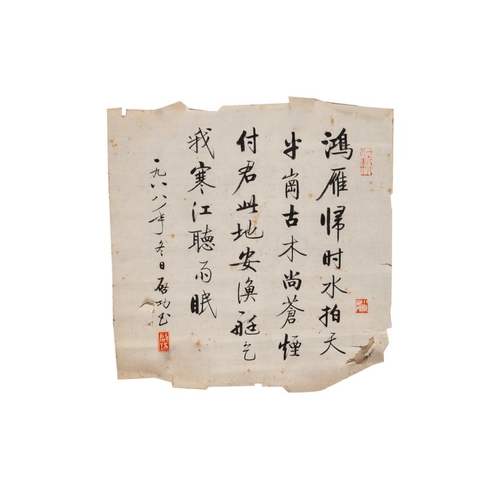 鴻雁帰时水拍天
半崗古木尚蒼煙
付君此地安漁艇乞
我寒江聽雨眠
一九八八年冬日启功书